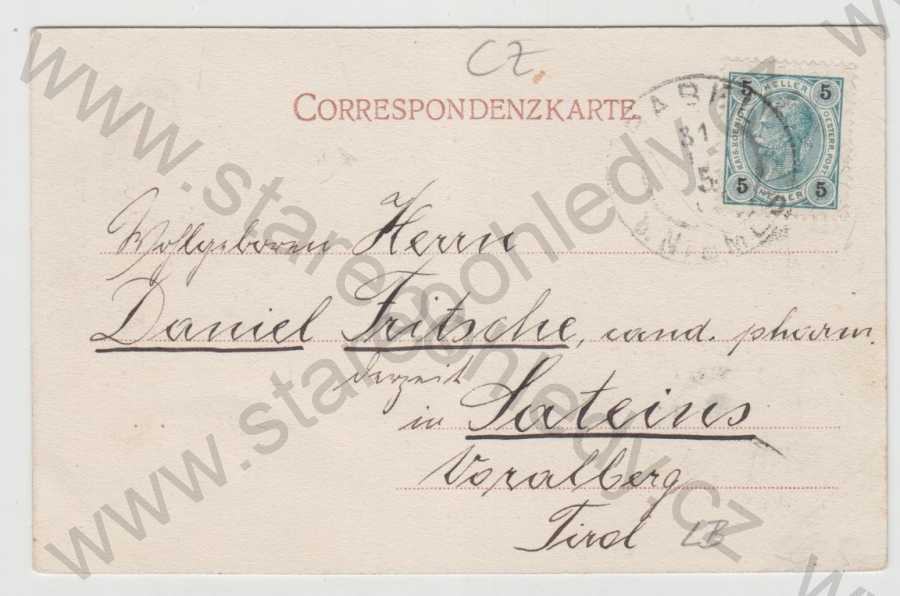 CZ.
CORRESPONDENZKARTE
5 HELLER 5
KAIS. KOENIGL. OESTERR. POST
5 HELLER 5
GABEL
31
5
Wohlgeboren Herrn
Daniel Fritsche, cand. pharm.
derzeit
in Sateins
Voralberg
Tirol LB
www.starepohledy.cz
www.starepohledy.cz
www.starepohledy.cz